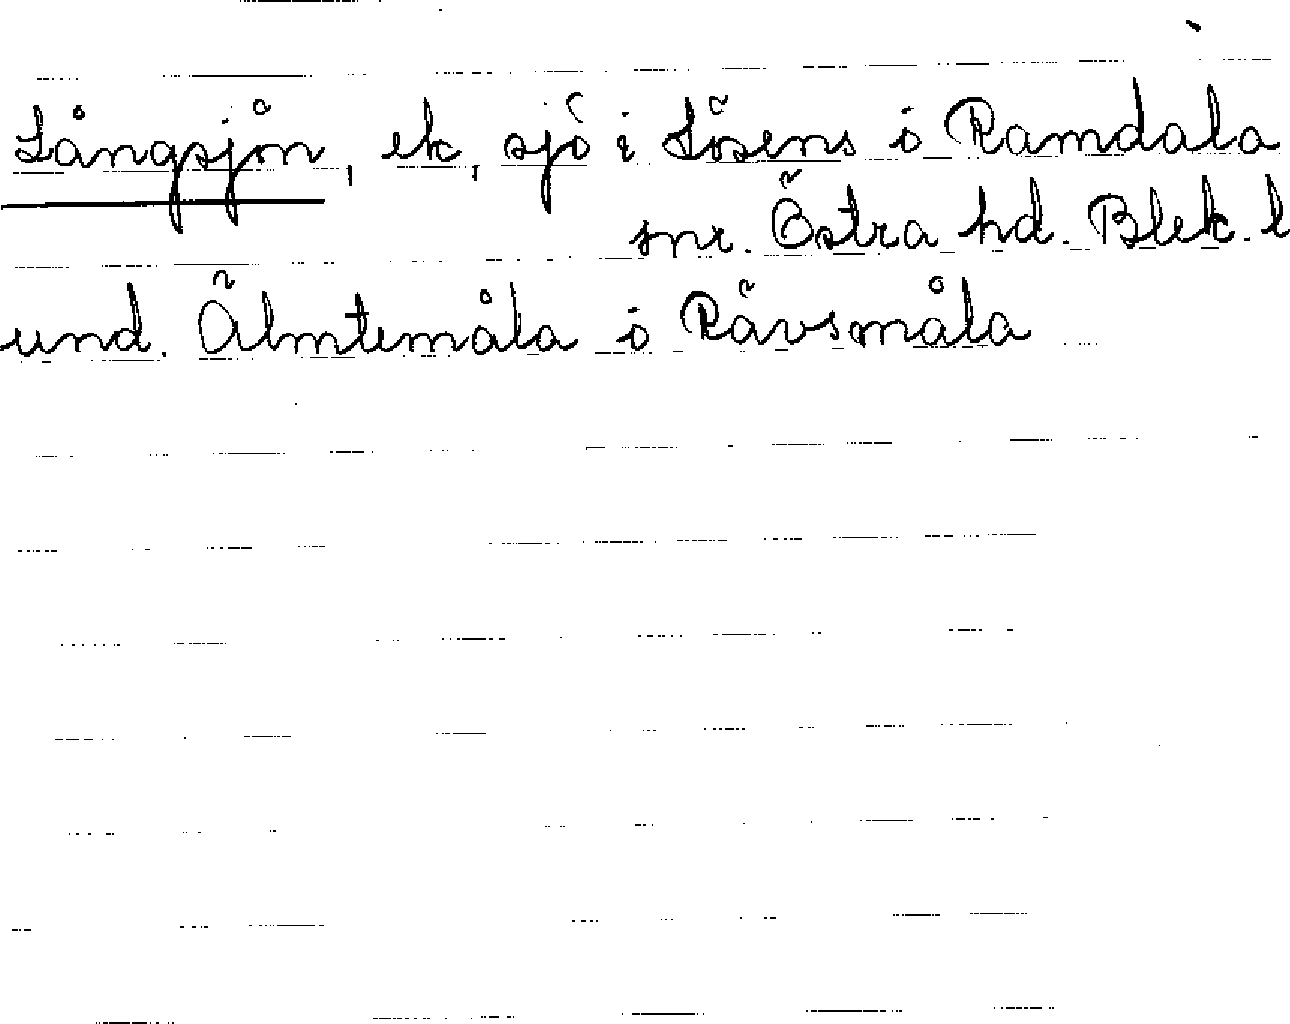 Långsjön, ek, sjö i Lösens o Ramdala
snr. Östra hd. Blek. l
und. Älmtemåla o Rävsmåla